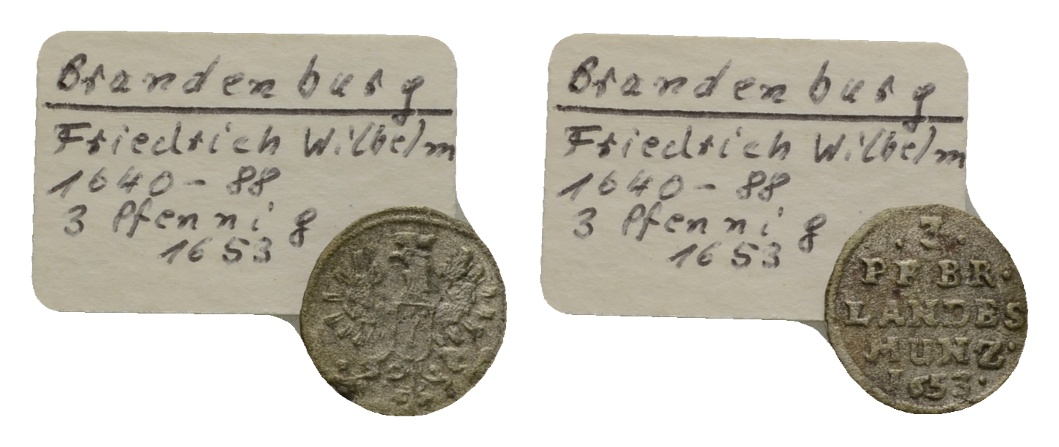 Brandenburg
Friedrich Wilhelm
1640-88
3 Pfennig
1653
Brandenburg
Friedrich Wilhelm
1640-88
3 Pfennig
1653
·3·
PFBR·
LANDES
MUNZ·
1653·